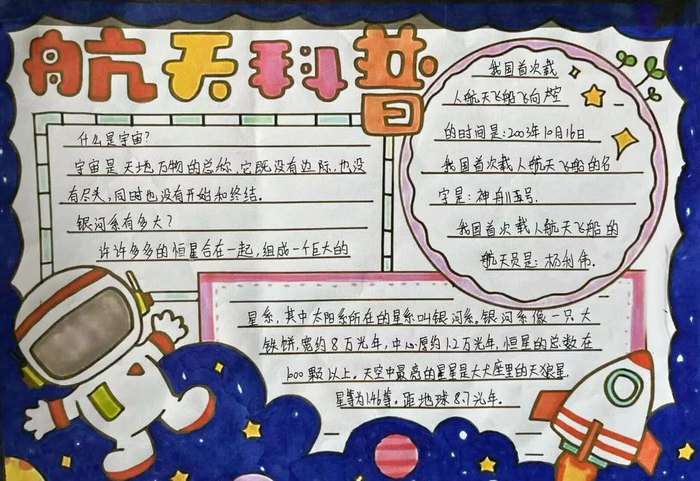 航天科普
什么是宇宙?
宇宙是天地万物的总称,它既没有边际,也没
有尽头,同时也没有开始和终结。
银河系有多大?
许许多多的恒星合在一起,组成一个巨大的
我国首次载
人航天飞船飞向太空
的时间是:2003年10月16日
我国首次载人航天飞船的名
字是:神舟五号.
我国首次载人航天飞船的
航天员是:杨利伟.
星系,其中太阳系所在的星系叫银河系,银河系像一只大
铁饼,宽约8万光年,中心厚约1.2万光年,恒星的总数在
1000颗以上,天空中最亮的星星是大犬座里的天狼星
星等为1.46等,距地球8.7光年.